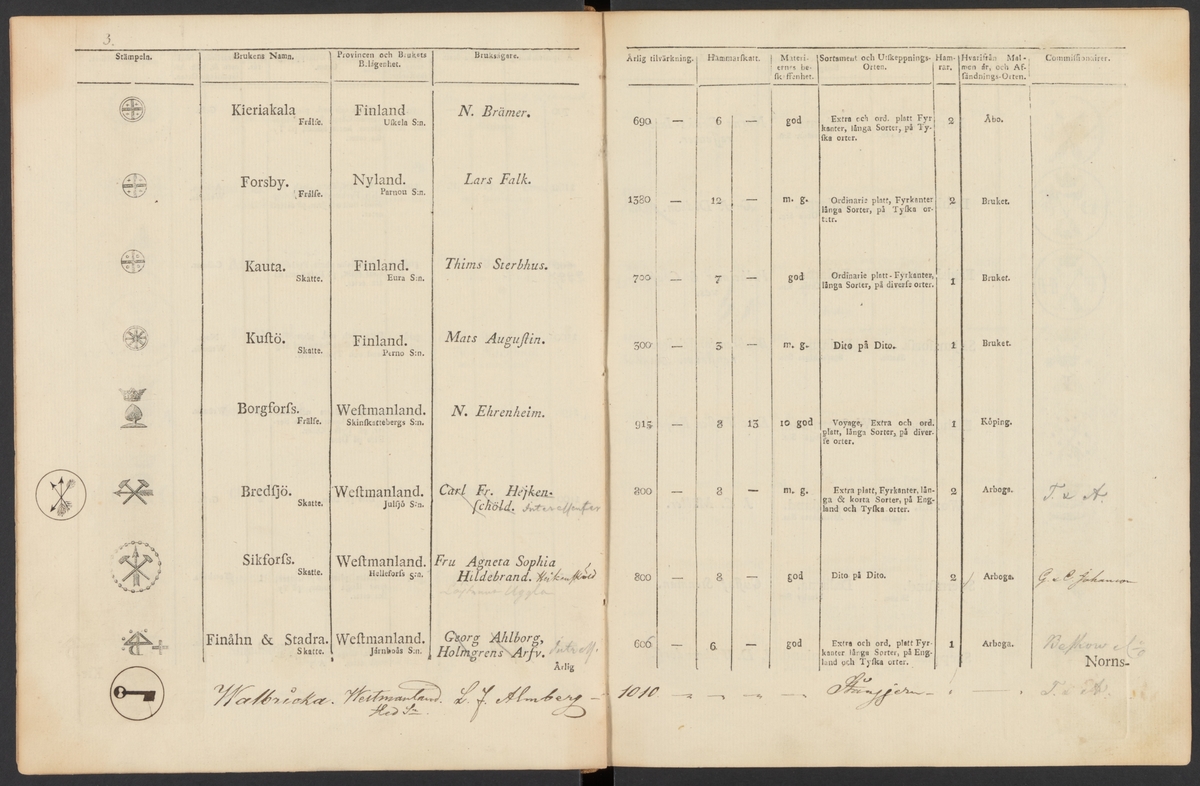 3.
Stämpeln. Brukens Namn. Provincen och Brukets Belägenhet. Bruksägare. Årlig tilvärkning. Hammarſkatt. Materiernes beſkaffenhet. Sortsment och Utſkeppnings-Orten. Hamrar. Hvarifrån Malmen är, och Afſändnings-Orten. Commiſſionairer.
Kieriakala Finland N. Brämer. 690 — 6 — god Extra och ord. platt Fyr 2 Åbo.
Frälſe. Uſkela S:n. kanter, långa Sorter, på Ty-
ſka orter.
Forsby. Nyland. Lars Falk. 1380 — 12 — m. g. Ordinarie platt, Fyrkanter 2 Bruket.
Frälſe. Parnou S:n. långa Sorter, på Tyſka or-
Kauta. Finland. Thims Sterbhus. 700 — 7 — god Ordinarie platt-Fyrkanter, 1 Bruket.
Skatte. Eura S:n. långa Sorter, på diverſe orter.
Kuſtö. Finland. Mats Auguſtin. 300 — 3 — m. g. Dito på Dito. 1 Bruket.
Skatte. Parno S:n.
Borgforſs. Weſtmanland. N. Ehrenheim. 915 — 8 13 10 god Voyage, Extra och ord. 1 Köping.
Frälſe. Skinſkattebergs S:n. platt, långa Sorter, på diver-
ſe orter.
Bredſjö. Weſtmanland. Carl Fr. Hejken- 800 — 8 — m. g. Extra platt, Fyrkanter, lån- 2 Arboga. T. & A.
Skatte. Julſjö S:n. ſchöld. Intereſſenter ga & korta Sorter, på Eng-
land och Tyſka orter.
Sikforſs. Weſtmanland. Fru Agneta Sophia 800 — 8 — god Dito på Dito. 2 Arboga. G. & C. Johanson
Skatte. Helleforſs S:n. Hildebrand. Heikenſköld
Finåhn & Stadra. Weſtmanland. Georg Ahlborg, 606 — 6 — god Extra och ord, platt Fyr- 1 Arboga. Beſkow & Co
Skatte. Järnboås S:n. Holmgrens Arfv. Intreſſ. kanter långa Sorter, på Eng-
land och Tyſka orter.
Årlig Norns-
Walbricka. Westmanland. L. J. Almberg — 1010 Stångjern — T. & A.
Hed Sn.